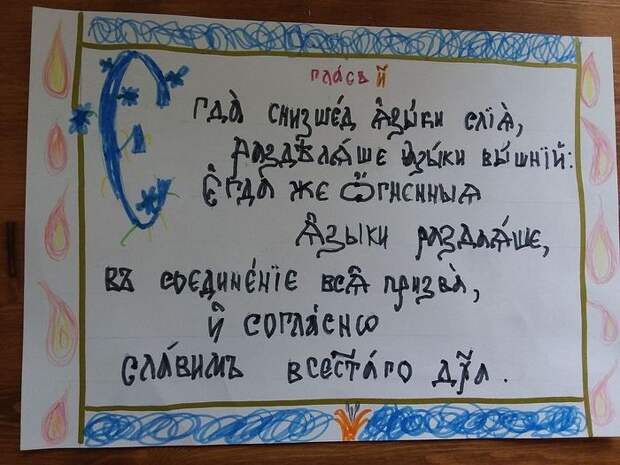 гла́съ и҃
Егда̀ снизше́д ѧ҆зы́ки слїѧ̀,
раздѣлѧ́ше ѧ҆зы́ки вы́шнїй:
є҆гда же ѻ҆́гненныѧ
ѧ҆зы́ки раздаѧ́ше,
въ соєдине́нїе всѧ҆̀ призва̀,
и҆ согла́снѡ
сла́вимъ всест҃а́го дх҃а.